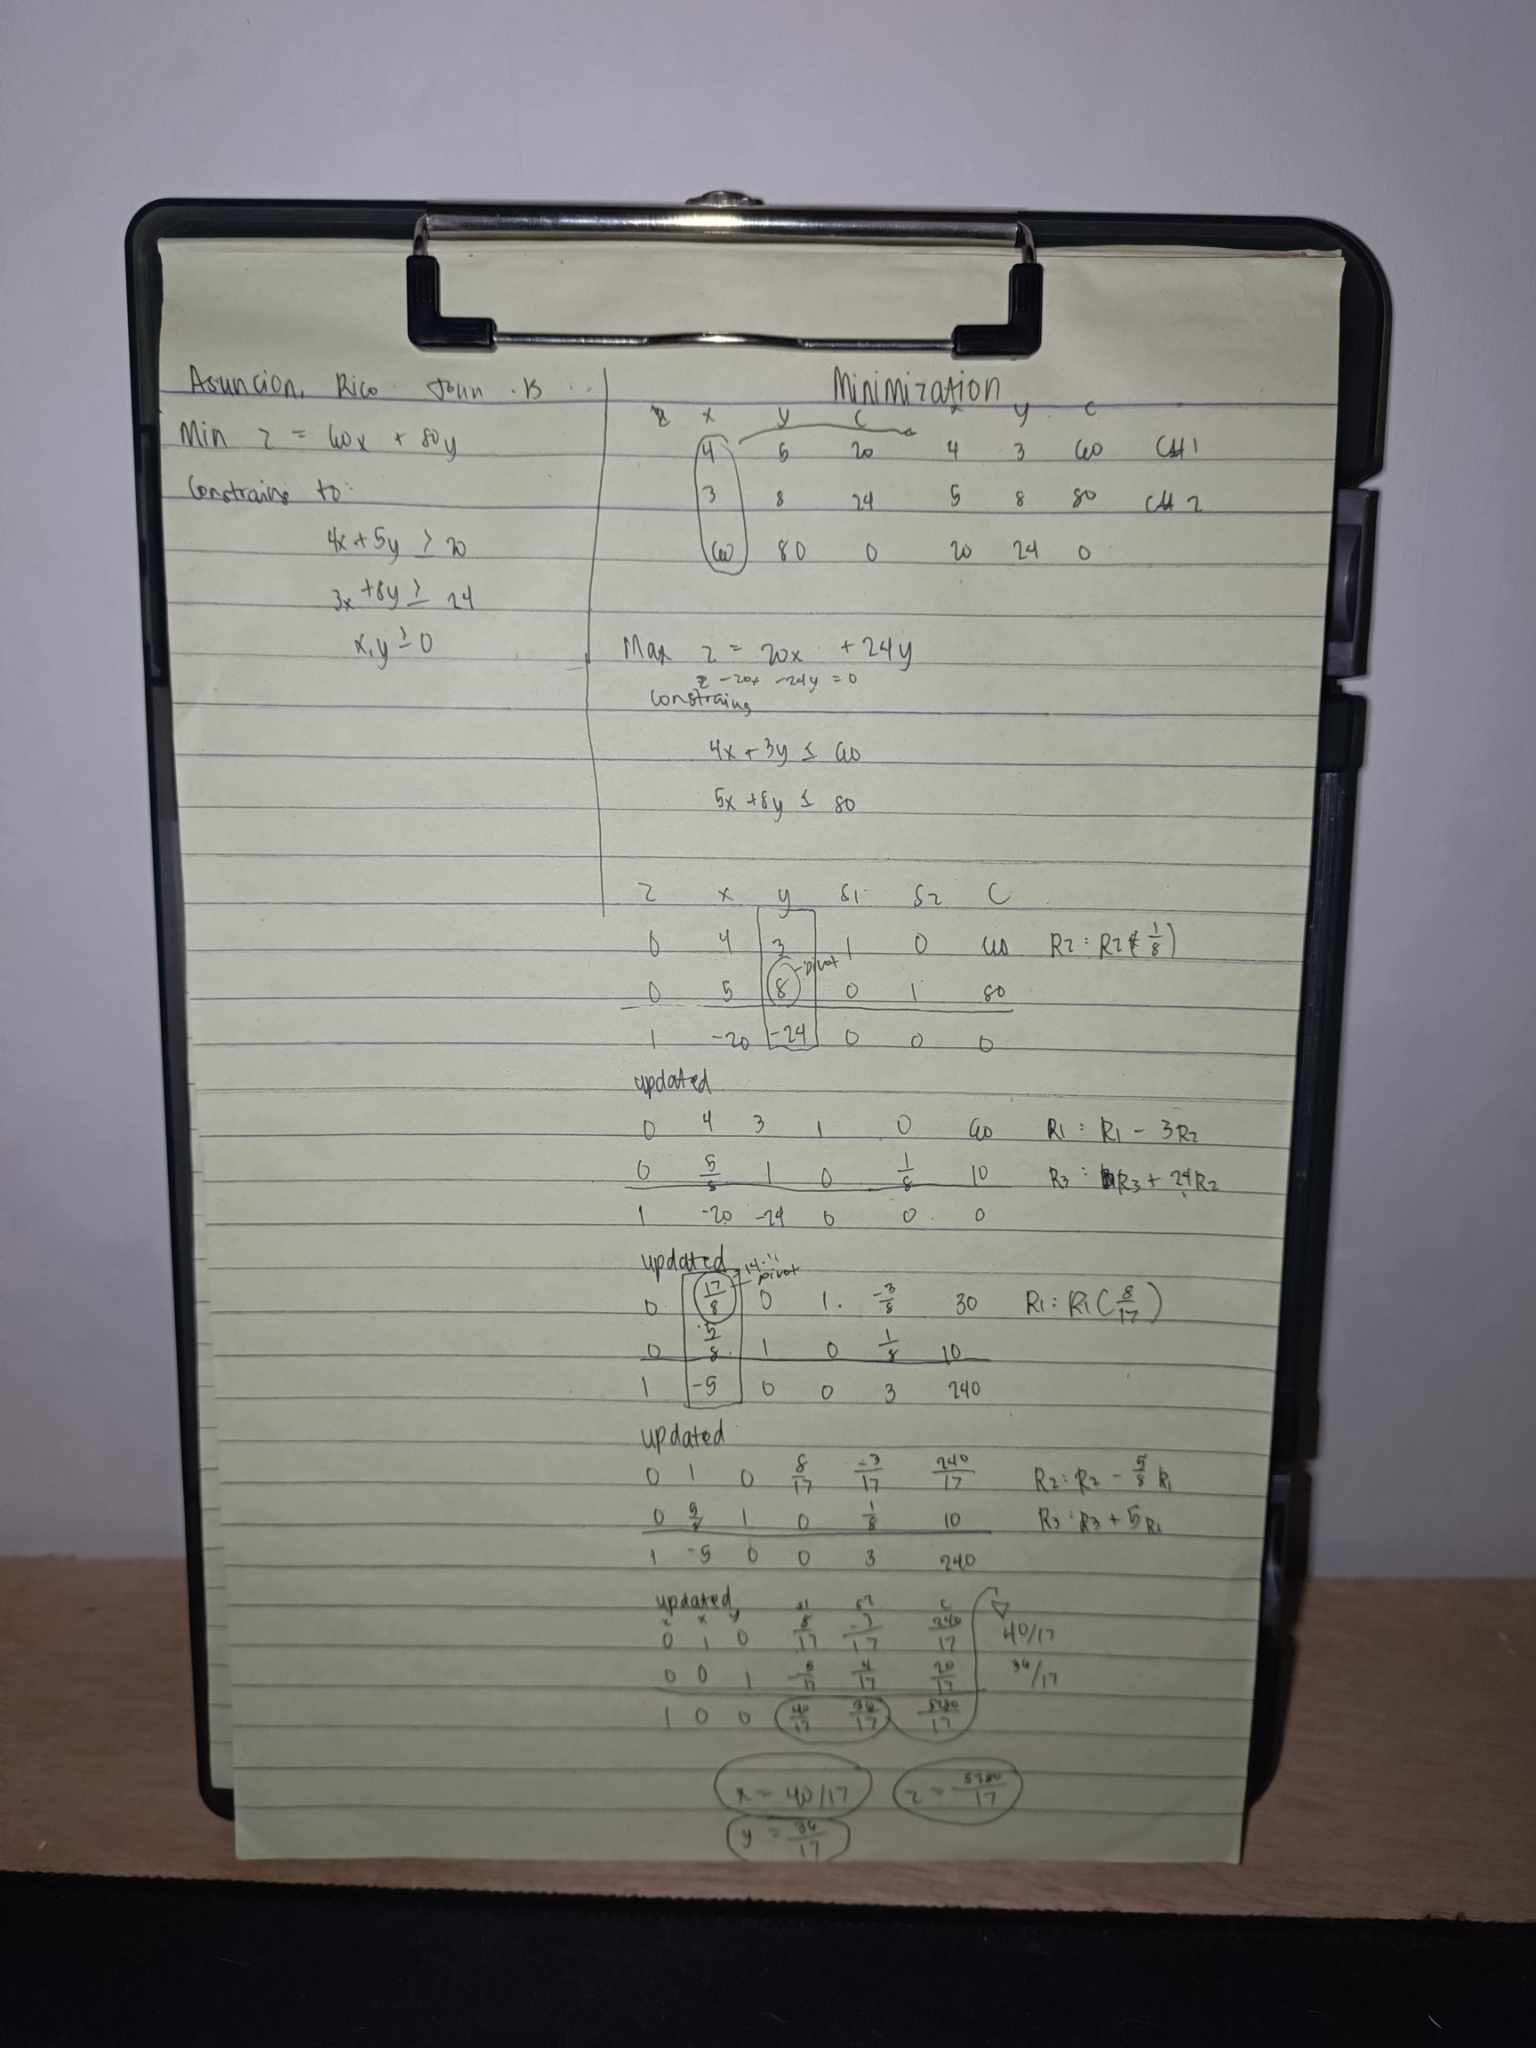 Asuncion, Rico John B.
Min z = 60x + 80y
Constrains to:
4x + 5y ≥ 20
3x + 8y ≥ 24
x, y ≥ 0
Minimization
z x y c x y c
4 5 20 4 3 60
3 8 24 5 8 80
60 80 0 20 24 0
Max z = 20x + 24y
z - 20x - 24y = 0
constrains
4x + 3y ≤ 60
5x + 8y ≤ 80
z x y S1 S2 C
0 4 3 1 0 60 R2 : R2 (1/8)
pivot
0 5 8 0 1 80
1 -20 -24 0 0 0
updated
0 4 3 1 0 60 R1 : R1 - 3R2
0 5/8 1 0 1/8 10 R3 : R3 + 24R2
1 -20 -24 0 0 0
updated
pivot
0 17/8 0 1 -3/8 30 R1 : R1 (8/17)
0 5/8 1 0 1/8 10
1 -5 0 0 3 240
updated
0 1 0 8/17 -3/17 240/17 R2 : R2 - 5/8 R1
0 5/8 1 0 1/8 10 R3 : R3 + 5R1
1 -5 0 0 3 240
updated
z x y s1 s2 c
0 1 0 8/17 -3/17 240/17 40/17
0 0 1 -5/17 4/17 20/17 36/17
1 0 0 40/17 36/17 5280/17
x = 40/17 z = 5280/17
y = 36/17